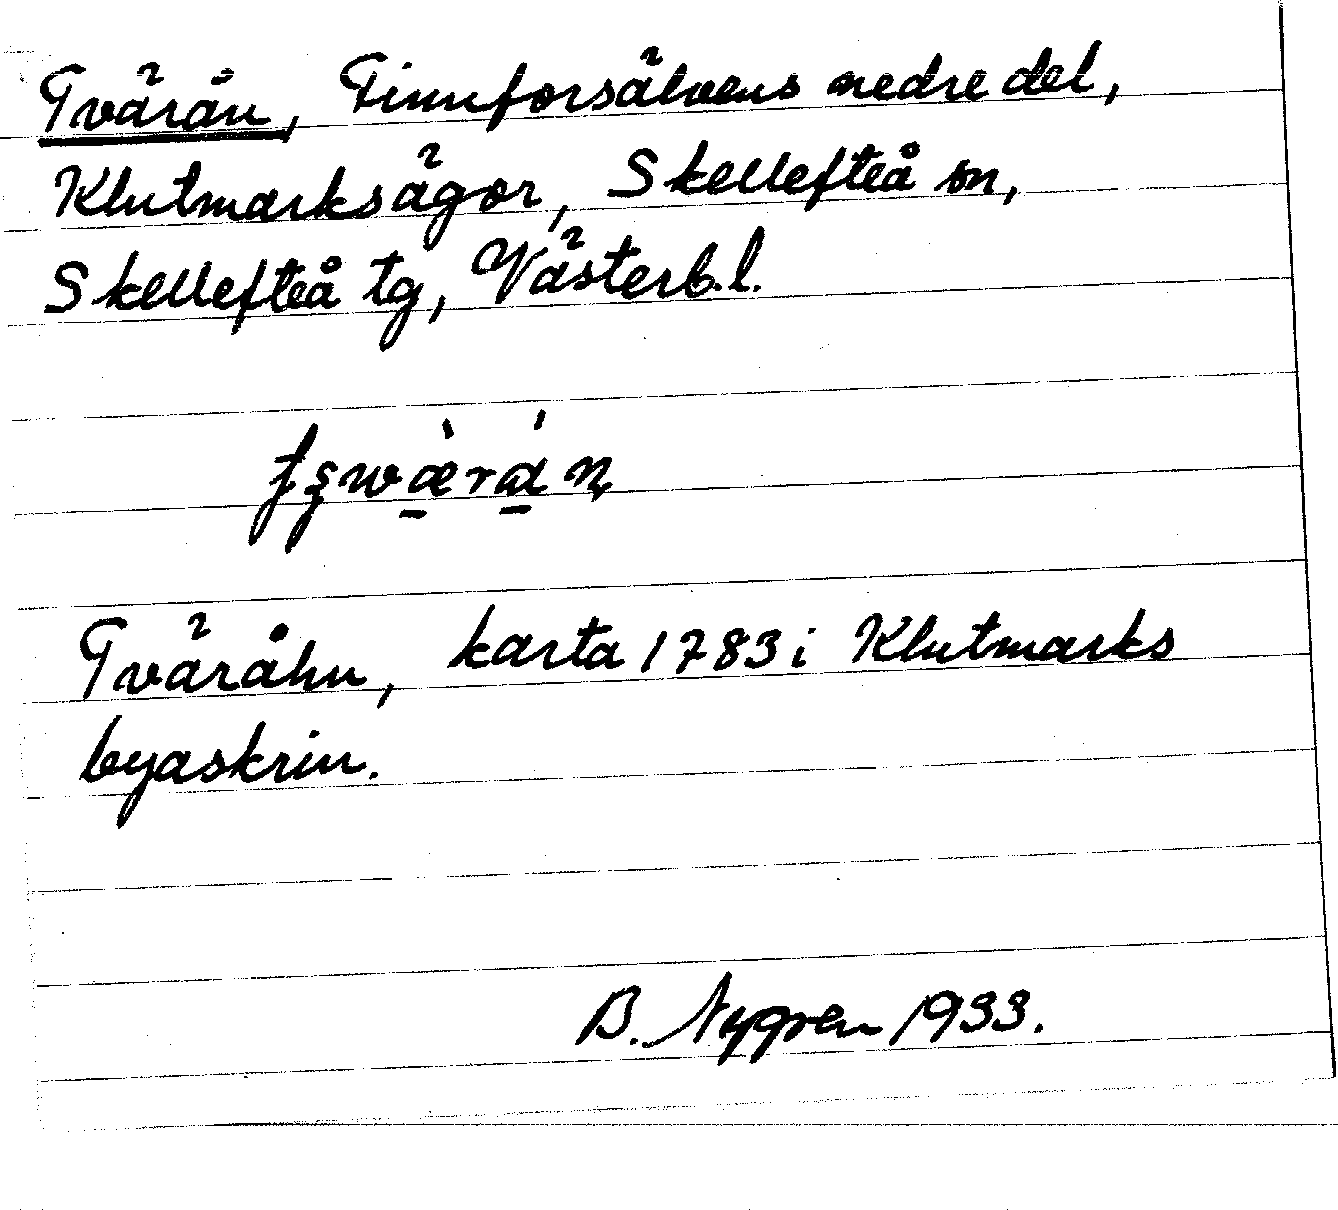 Tvärån, Finnforsälvens nedre del,
Klutmarksägor, Skellefteå sn,
Skellefteå tg, Västerb.l.
Tväråhn, karta 1783 i Klutmarks
byaskrin.
B. Nygren 1933.